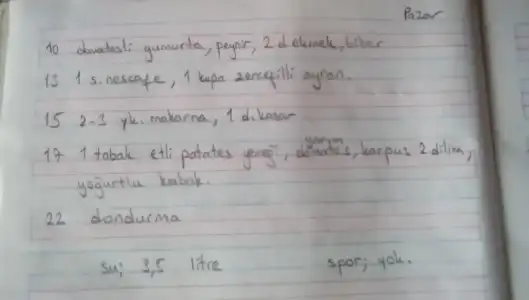 Pazar
10 domatesli yumurta, peynir, 2 d. ekmek, biber
13 1 s. nescafe, 1 kupa zencefilli ayran.
15 2-3 yk. makarna, 1 d. kaşar
17 1 tabak etli patates yemeği, karpuz 2 dilim,
yoğurtlu kabak.
22 dondurma
su; 3,5 litre spor; yok.